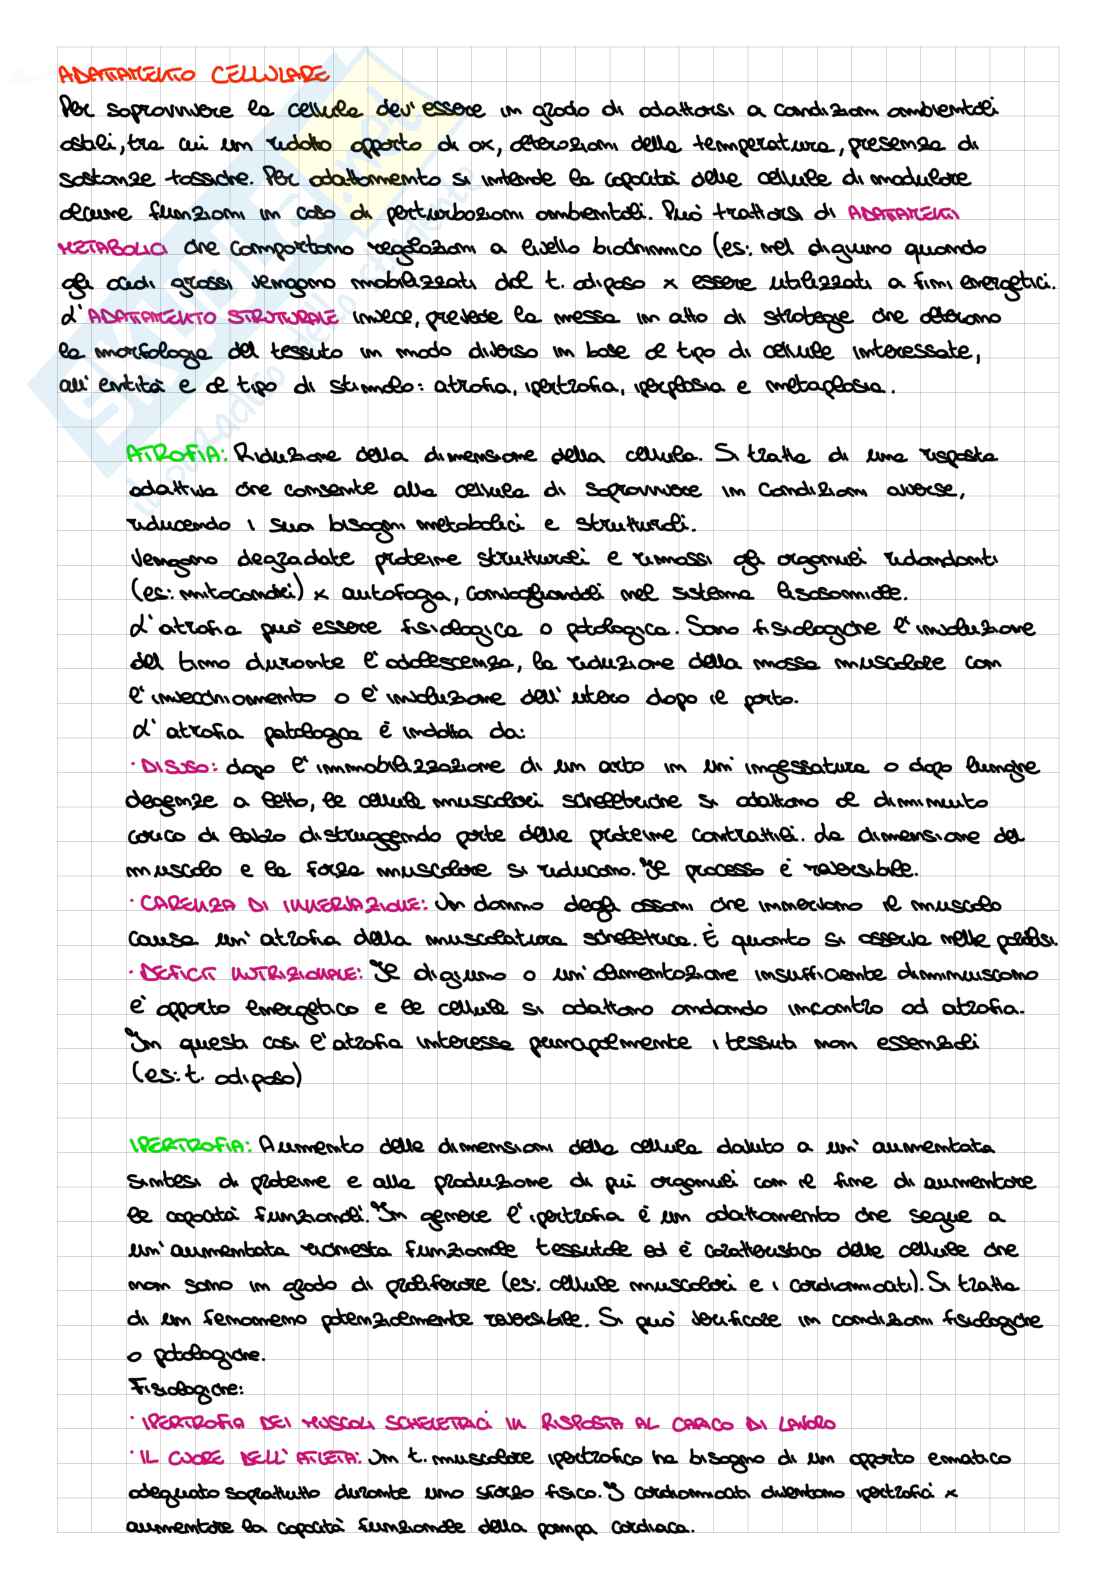 ADATTAMENTO CELLULARE
Per sopravvivere la cellula dev'essere in grado di adattarsi a condizioni ambientali
ostili, tra cui un ridotto apporto di ox, alterazioni della temperatura, presenza di
sostanze tossiche. Per adattamento si intende la capacità delle cellule di modulare
alcune funzioni in caso di perturbazioni ambientali. Può trattarsi di ADATTAMENTI
METABOLICI che comportano regolazioni a livello biochimico (es: nel digiuno quando
gli acidi grassi vengono mobilizzati dal t. adiposo x essere utilizzati a fini energetici.
L'ADATTAMENTO STRUTTURALE invece, prevede la messa in atto di strategie che alterano
la morfologia del tessuto in modo diverso in base al tipo di cellule interessate,
all'entità e al tipo di stimolo: atrofia, ipertrofia, iperplasia e metaplasia.
ATROFIA: Riduzione della dimensione della cellula. Si tratta di una risposta
adattiva che consente alla cellula di sopravvivere in condizioni avverse,
riducendo i suoi bisogni metabolici e strutturali.
Vengono degradate proteine strutturali e rimossi gli organuli ridondanti
(es: mitocondri) x autofagia, convogliandoli nel sistema lisosomiale.
L'atrofia può essere fisiologica o patologica. Sono fisiologiche l'involuzione
del timo durante l'adolescenza, la riduzione della massa muscolare con
l'invecchiamento o l'involuzione dell'utero dopo il parto.
L'atrofia patologica è indotta da:
· DISUSO: dopo l'immobilizzazione di un arto in un'ingessatura o dopo lunghe
degenze a letto, le cellule muscolari scheletriche si adattano al diminuito
carico di lavoro distruggendo parte delle proteine contrattili. La dimensione del
muscolo e la forza muscolare si riducono. Il processo è reversibile.
· CARENZA DI INNERVAZIONE: Un danno degli assoni che innervano il muscolo
causa un'atrofia della muscolatura scheletrica. È quanto si osserva nelle paralisi.
· DEFICIT NUTRIZIONALE: Il digiuno o un'alimentazione insufficiente diminuiscono
l'apporto energetico e le cellule si adattano andando incontro ad atrofia.
In questi casi l'atrofia interessa principalmente i tessuti non essenziali
(es: t. adiposo)
IPERTROFIA: Aumento delle dimensioni della cellula dovuto a un'aumentata
sintesi di proteine e alla produzione di più organuli con il fine di aumentare
le capacità funzionali. In genere l'ipertrofia è un adattamento che segue a
un'aumentata richiesta funzionale tessutale ed è caratteristico delle cellule che
non sono in grado di proliferare (es: cellule muscolari e i cardiomiociti). Si tratta
di un fenomeno potenzialmente reversibile. Si può verificare in condizioni fisiologiche
o patologiche.
Fisiologiche:
· IPERTROFIA DEI MUSCOLI SCHELETRICI IN RISPOSTA AL CARICO DI LAVORO
· IL CUORE DELL'ATLETA: Un t. muscolare ipertrofico ha bisogno di un apporto ematico
adeguato soprattutto durante uno sforzo fisico. I cardiomiociti diventano ipertrofici x
aumentare la capacità funzionale della pompa cardiaca.